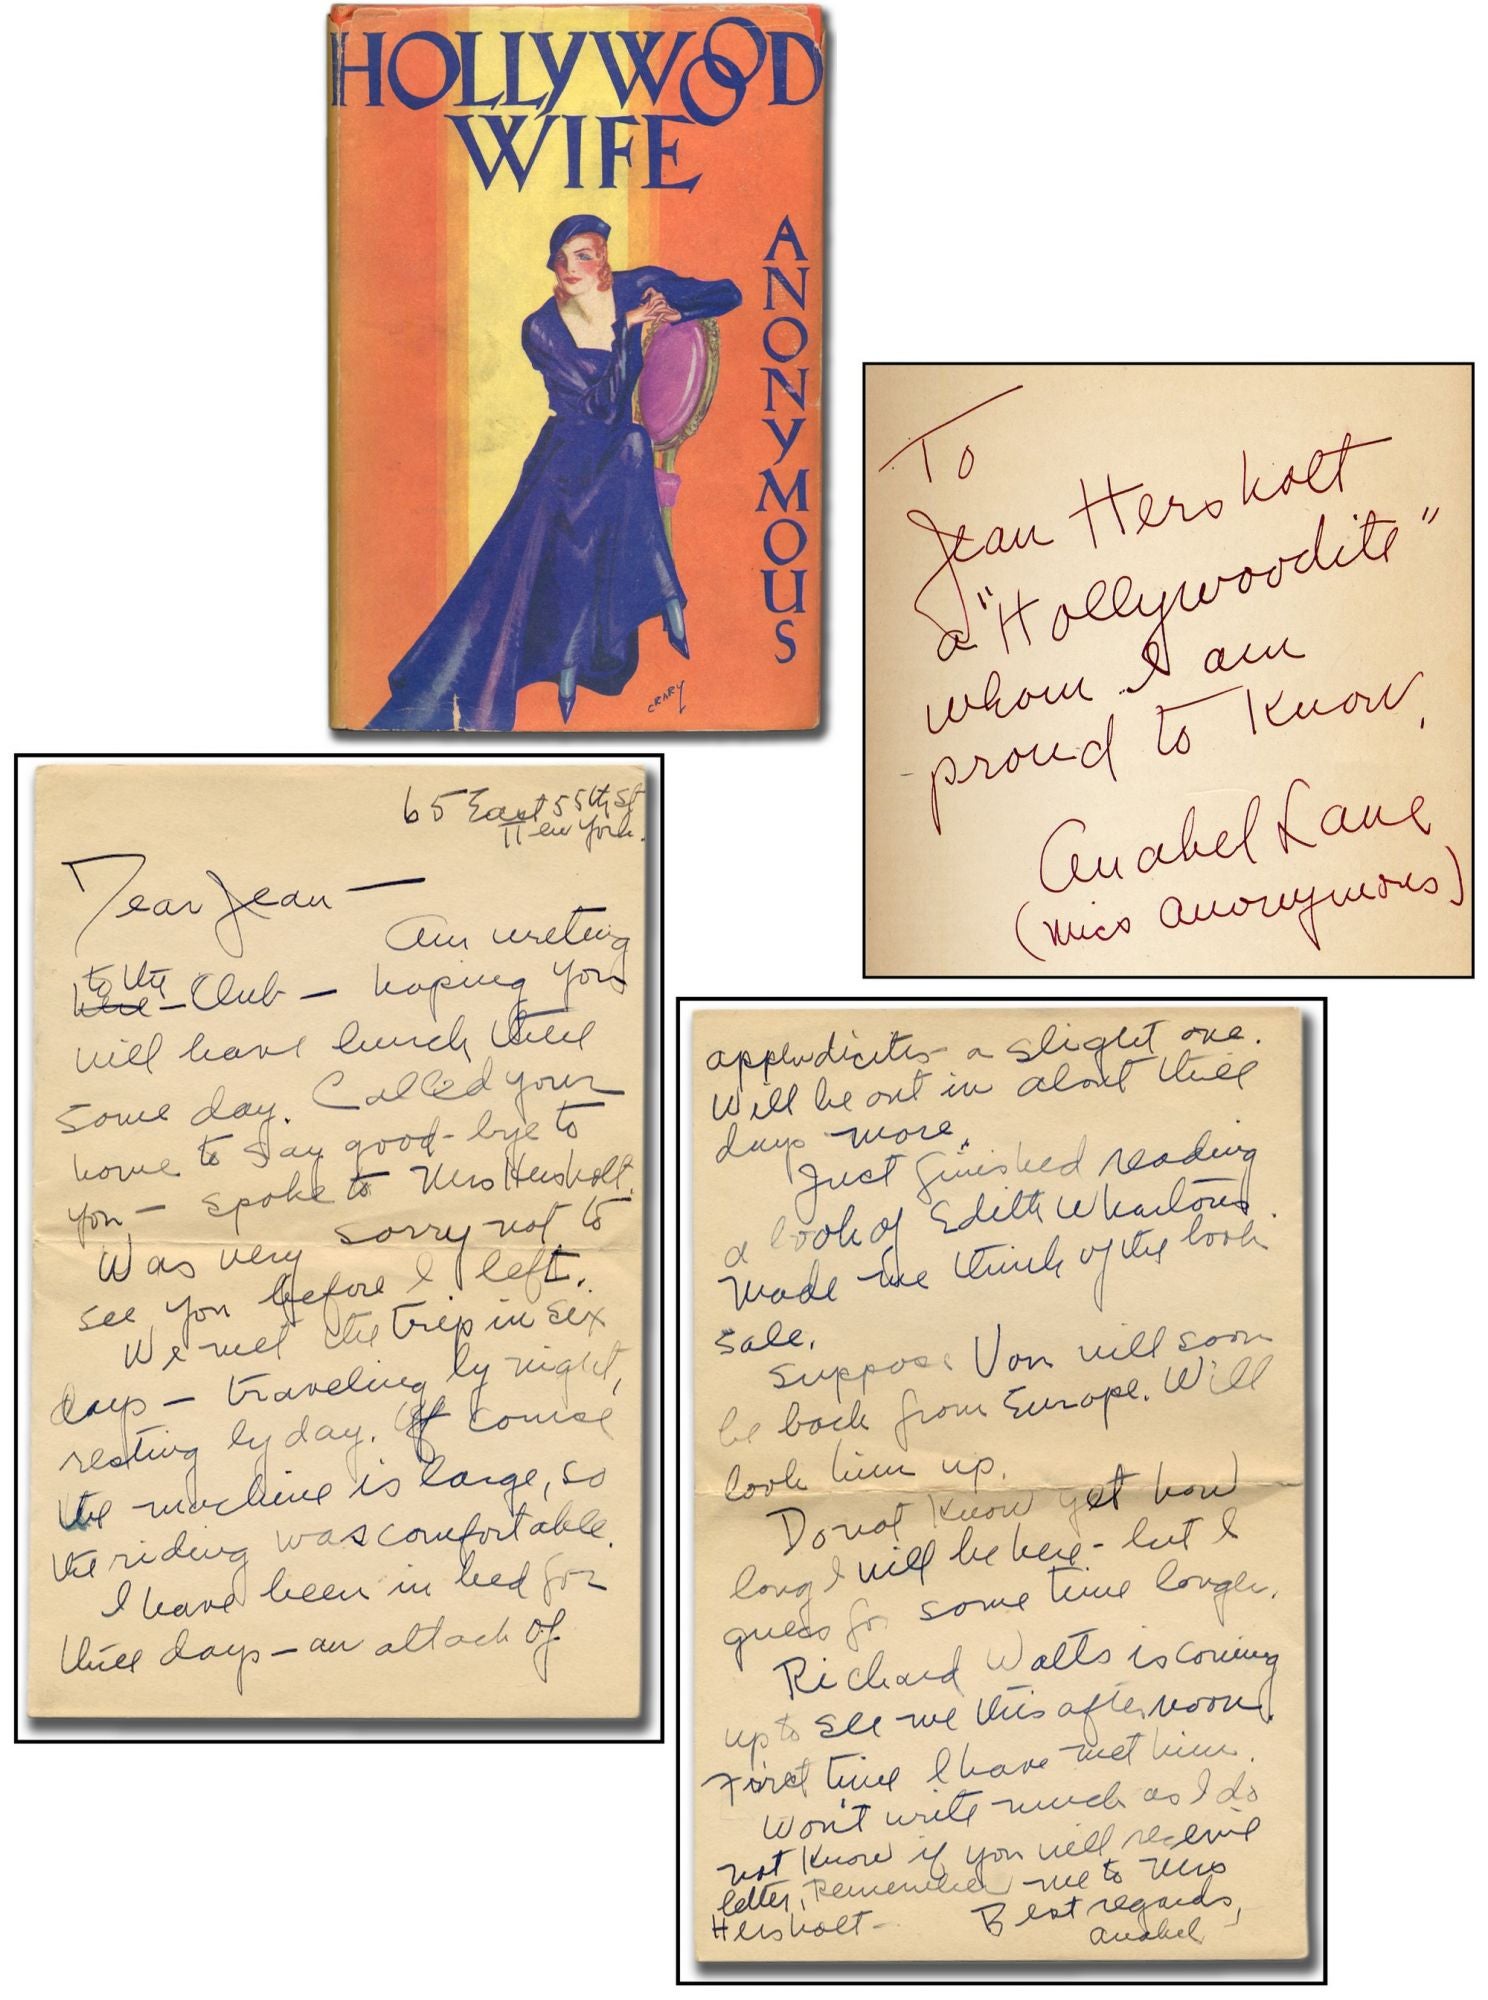 HOLLYWOOD
WIFE
ANONYMOUS
CRARY
To
Jean Hersholt
a "Hollywoodite"
whom I am
proud to know,
Anabel Lane
(Miss Anonymous)
65 East 55th St
New York.
Dear Jean —
Am writing
to the
here - Club — hoping you
will have lunch there
some day. Called your
home to say good-bye to
you — spoke to Mrs Hersholt.
Was very sorry not to
see you before I left.
We made the trip in six
days — traveling by night,
resting by day. Of course
the machine is large, so
the riding was comfortable.
I have been in bed for
three days — an attack of
appendicitis - a slight one.
Will be out in about three
days more.
Just finished reading
a book of Edith Whartons.
Made me think of the book
sale.
Suppose Von will soon
be back from Europe. Will
look him up.
Do not know yet how
long I will be here - but I
guess for some time longer.
Richard Watts is coming
up to see me this afternoon.
First time I have met him.
Won't write much as I do
not know if you will receive
letter. Remember me to Mrs
Hersholt -
Best regards,
Anabel